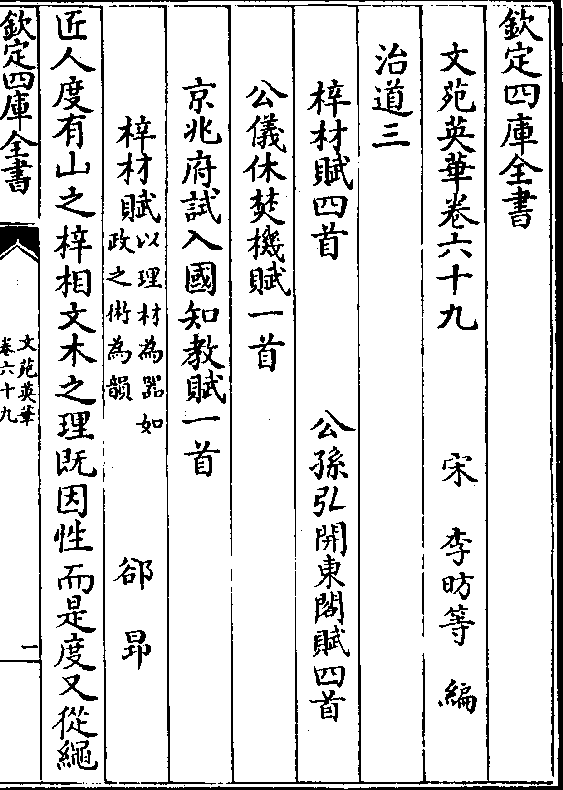 欽定四庫全書
文苑英華卷六十九　宋　李昉等　編
治道三
梓材賦四首　公孫弘開東閣賦四首
公儀休焚機賦一首
京兆府試入國知教賦一首
梓材賦以理材為器如政之術為韻　郤昂
匠人度有山之梓相文木之理既因性而是度又從繩
欽定四庫全書　文苑英華卷六十九　一